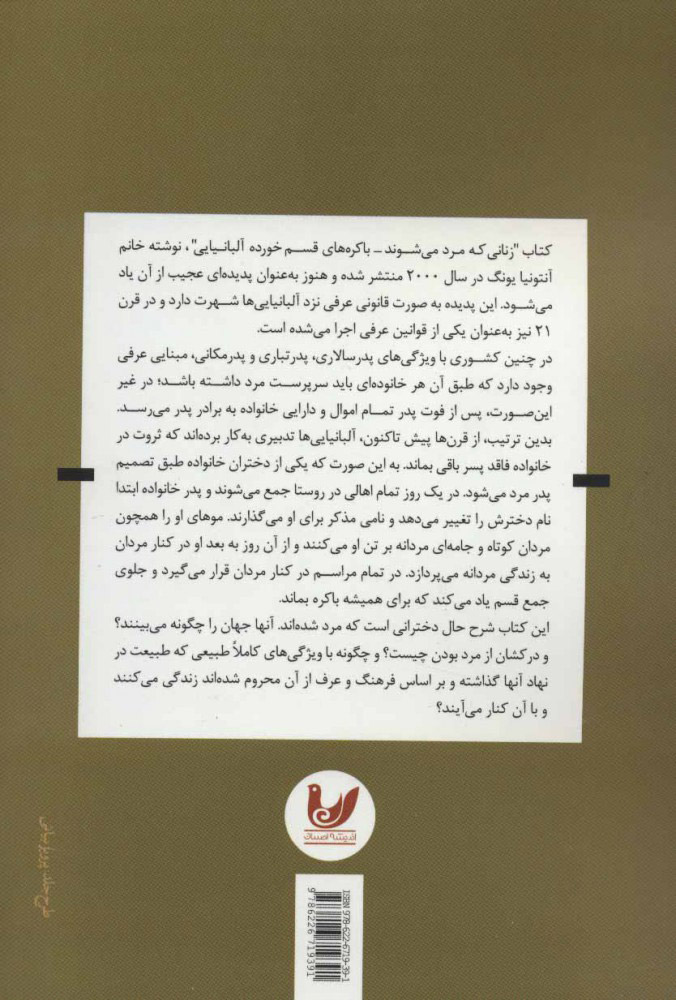 کتاب "زنانی که مرد می‌شوند – باکره‌های قسم خورده آلبانیایی"، نوشته خانم
آنتونیا یونگ در سال ۲۰۰۰ منتشر شده و هنوز به‌عنوان پدیده‌ای عجیب از آن یاد
می‌شود. این پدیده به صورت قانونی عرفی نزد آلبانیایی‌ها شهرت دارد و در قرن
۲۱ نیز به‌عنوان یکی از قوانین عرفی اجرا می‌شده است.
در چنین کشوری با ویژگی‌های پدرسالاری، پدرتباری و پدرمکانی، مبنایی عرفی
وجود دارد که طبق آن هر خانوده‌ای باید سرپرست مرد داشته باشد؛ در غیر
این‌صورت، پس از فوت پدر تمام اموال و دارایی خانواده به برادر پدر می‌رسد.
بدین ترتیب، از قرن‌ها پیش تاکنون، آلبانیایی‌ها تدبیری به‌کار برده‌اند که ثروت در
خانواده فاقد پسر باقی بماند. به این صورت که یکی از دختران خانواده طبق تصمیم
پدر مرد می‌شود. در یک روز تمام اهالی در روستا جمع می‌شوند و پدر خانواده ابتدا
نام دخترش را تغییر می‌دهد و نامی مذکر برای او می‌گذارند. موهای او را همچون
مردان کوتاه و جامه‌ای مردانه بر تن او می‌کنند و از آن روز به بعد او در کنار مردان
به زندگی مردانه می‌پردازد. در تمام مراسم در کنار مردان قرار می‌گیرد و جلوی
جمع قسم یاد می‌کند که برای همیشه باکره بماند.
این کتاب شرح حال دخترانی است که مرد شده‌اند. آنها جهان را چگونه می‌بینند؟
و درکشان از مرد بودن چیست؟ و چگونه با ویژگی‌های کاملاً طبیعی که طبیعت در
نهاد آنها گذاشته و بر اساس فرهنگ و عرف از آن محروم شده‌اند زندگی می‌کنند
و با آن کنار می‌آیند؟
اندیشه احسان
طرح جلد: پرویز بیانی
ISBN 978-622-6719-39-1
9 786226 719391